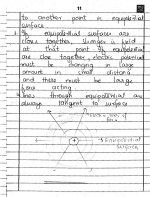 11
to another point in equipotential
surface
equipotential surfaces are
close together, number is valid
at that point. If equipotential
are close together, electric potential
must be changing in large
amount in small distance
and there must be large
force acting.
Lines through equipotential are
always tangent to surface
lines of
force
Equipotential
surface